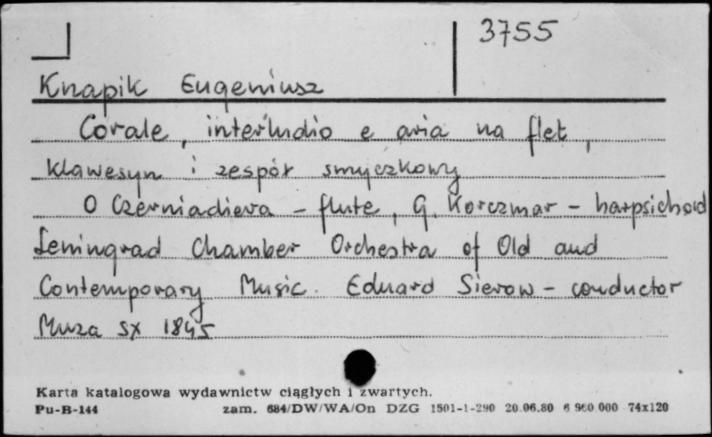 3755
Knapik Eugeniusz
Corale, interludio e aria na flet,
klawesyn i zespół smyczkowy
O Czerniadieva - flute, G. Korczmar - harpsichord
Leningrad Chamber Orchestra of Old and
Contemporary Music. Eduard Sierow - conductor
Muza SX 1845
Karta katalogowa wydawnictw ciągłych i zwartych.
Pu-B-144 zam. 684/DW/WA/On DZG 1501-1-290 20.06.80 6 960 000 74x120